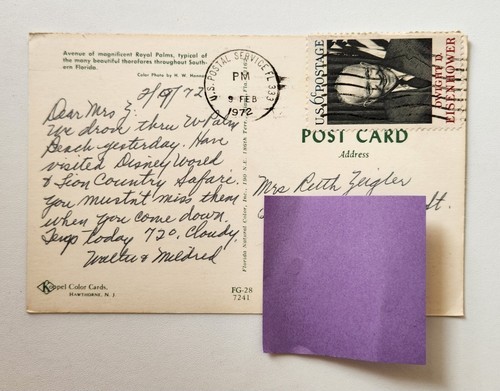 Avenue of magnificent Royal Palms, typical of
the many beautiful thorofares throughout South-
ern Florida.
Color Photo by H. W. Hannau
2/9/72
Dear Mrs Z:
We drove thru W Palm
Beach yesterday. Have
visited Disney World
& Lion Country Safari.
You mustn't miss them
when you come down.
Temp today 72°. Cloudy.
Walter & Mildred
Koppel Color Cards.
HAWTHORNE, N. J.
Florida Natural Color, Inc.,
FG-28
7241
U.S. POSTAL SERVICE FL 333
PM
9 FEB
1972
U.S. POSTAGE
DWIGHT D.
EISENHOWER
POST CARD
Address
Mrs Ruth Zeigler
St.